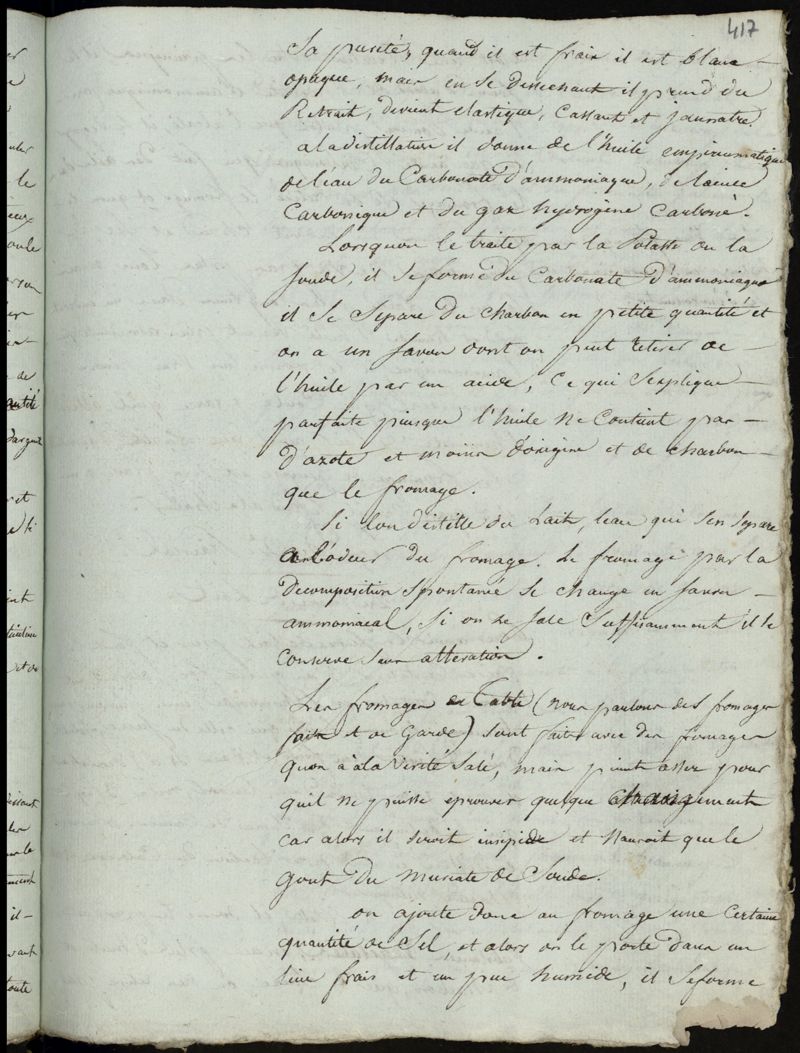 417
Sa pureté, quand il est frais il est blanc
opaque, mais en se dessechant il prend du
Retrait, devient elastique, Cassant et jaunatre.
a la distillation il donne de l'huile empireumatique
de l'eau du Carbonate d'ammoniaque, de l'acide
Carbonique et du gaz hydrogène Carboné.
Lorsquon le traite par la Potasse ou la
soude, il se forme du Carbonate d'ammoniaque
il se separe du charbon en petite quantité et
on a un savon dont on peut retirer de
l'huile par un acide, ce qui s'explique
parfaite puisque l'huile ne contient pas
d'azote et moins d'oxigène et de charbon
que le fromage.
Si lon distille du Lait, leau qui sen separe
a l'odeur du fromage. Le fromage par la
decomposition spontanée se change en savon
ammoniacal, si on le sale suffisamment il se
conserve sans alteration.
Les fromages de Table (nous parlons des fromages
faits et de Garde) sont faits avec des fromages
quon à a la verité salé, mais point assez pour
quil ne puisse eprouver quelque changement
car alors il seroit insipide et n'auroit que le
gout du muriate de Soude.
on ajoute donc au fromage une certaine
quantité de sel, et alors on le porte dans un
lieu frais et un peu humide, il se forme